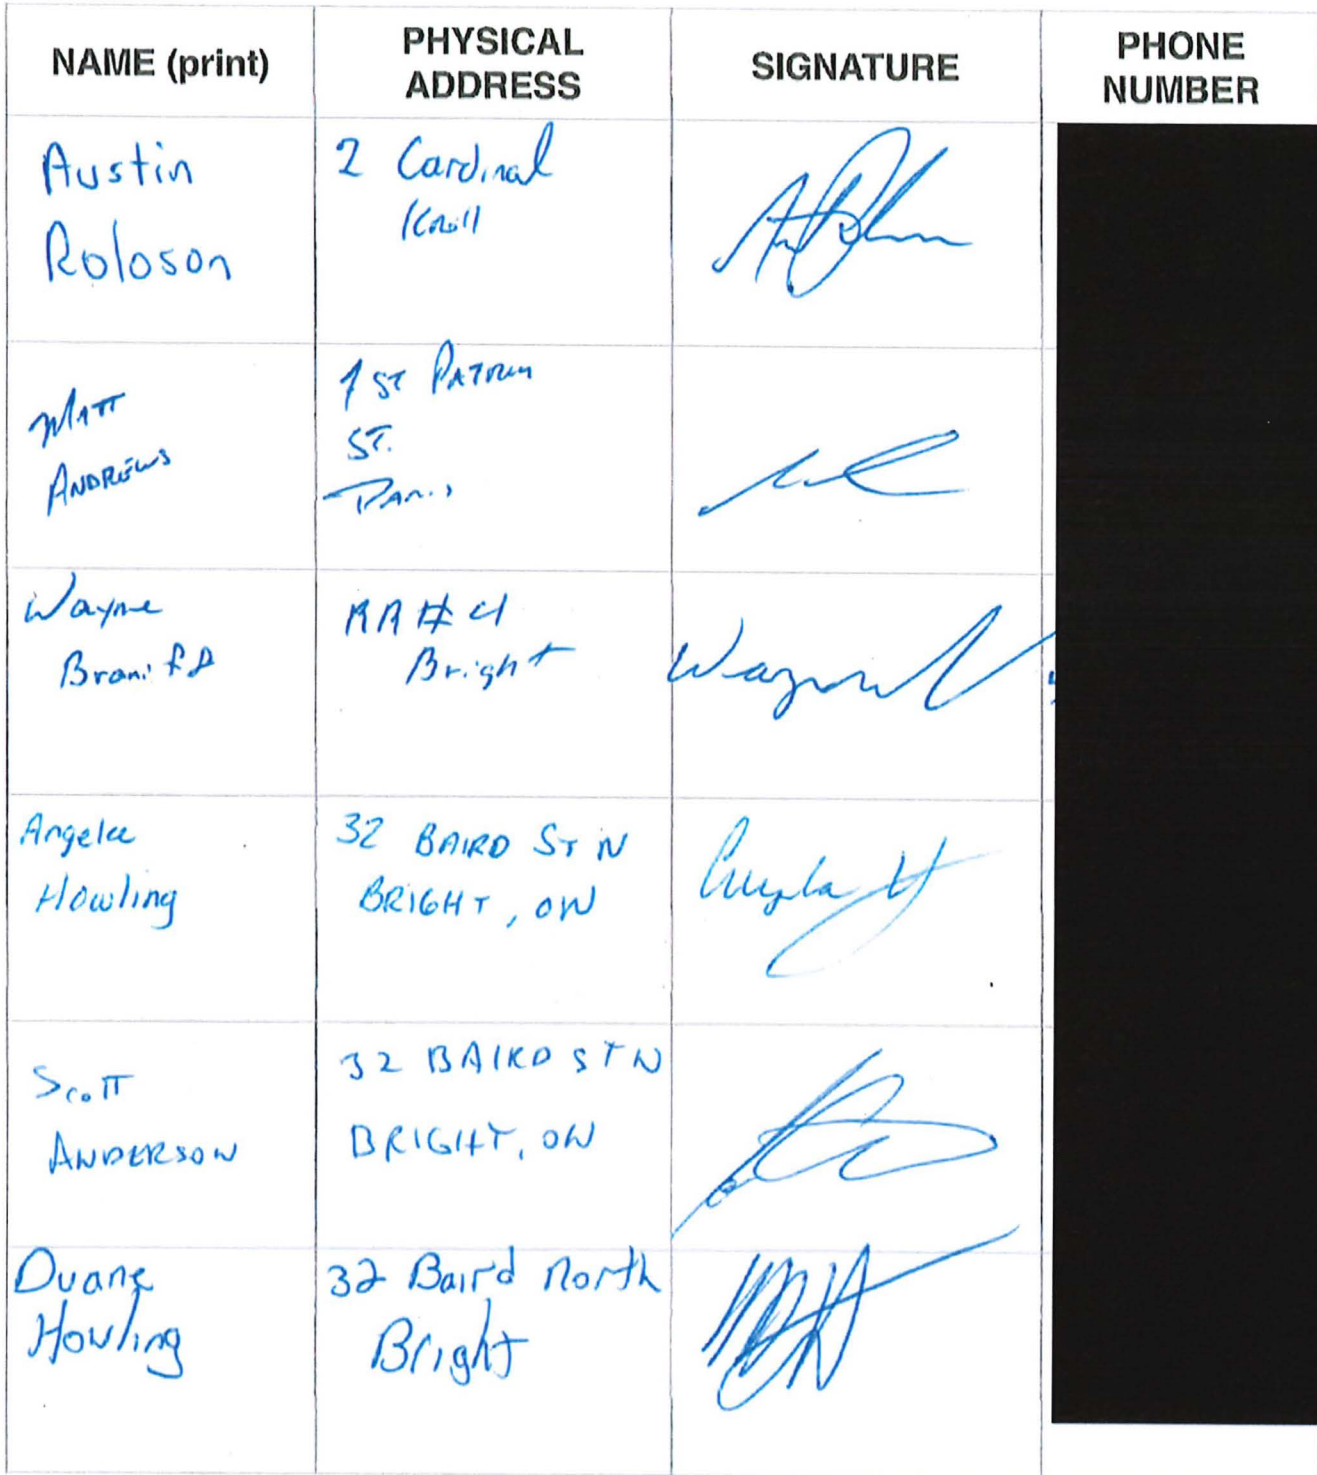 NAME (print)
PHYSICAL
ADDRESS
SIGNATURE
PHONE
NUMBER
Austin
Roloson
2 Cardinal
Knoll
MATT
ANDREWS
ST.
Wayne
RR #4
Bright
Wayne
Angela
Howling
32 BAIRD ST N
BRIGHT, ON
Angela H
Scott
ANDERSON
32 BAIRD ST N
BRIGHT, ON
Duane
Howling
32 Baird North
Bright